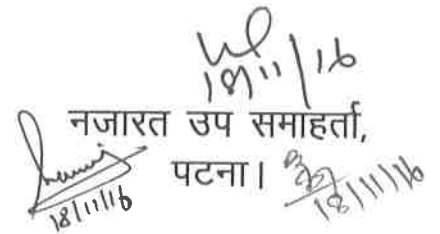 18/11/16
नजारत उप समाहर्ता,
पटना।
18/11/16
18/11/16